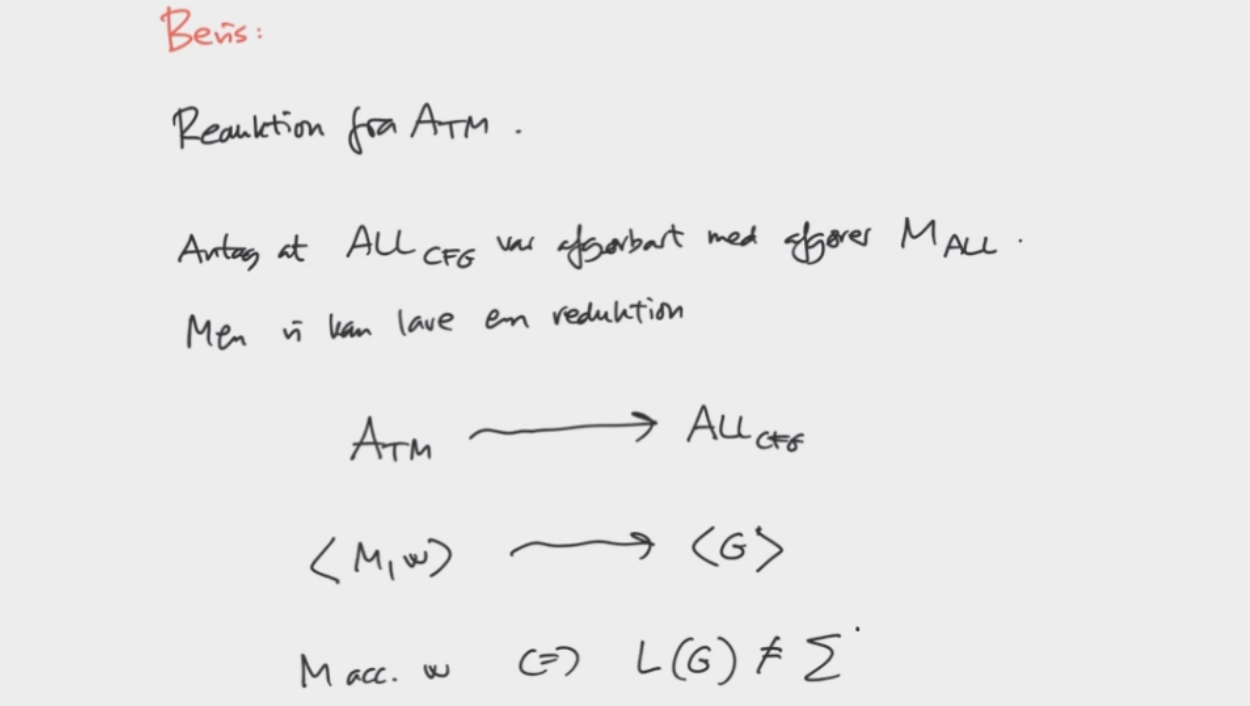 Bevis:
Reduktion fra A_TM.
Antag at ALL_CFG var afgørbart med afgører M_ALL.
Men vi kan lave en reduktion
A_TM → ALL_CFG
<M,w> → <G>
M acc. w <=> L(G) ≠ Σ